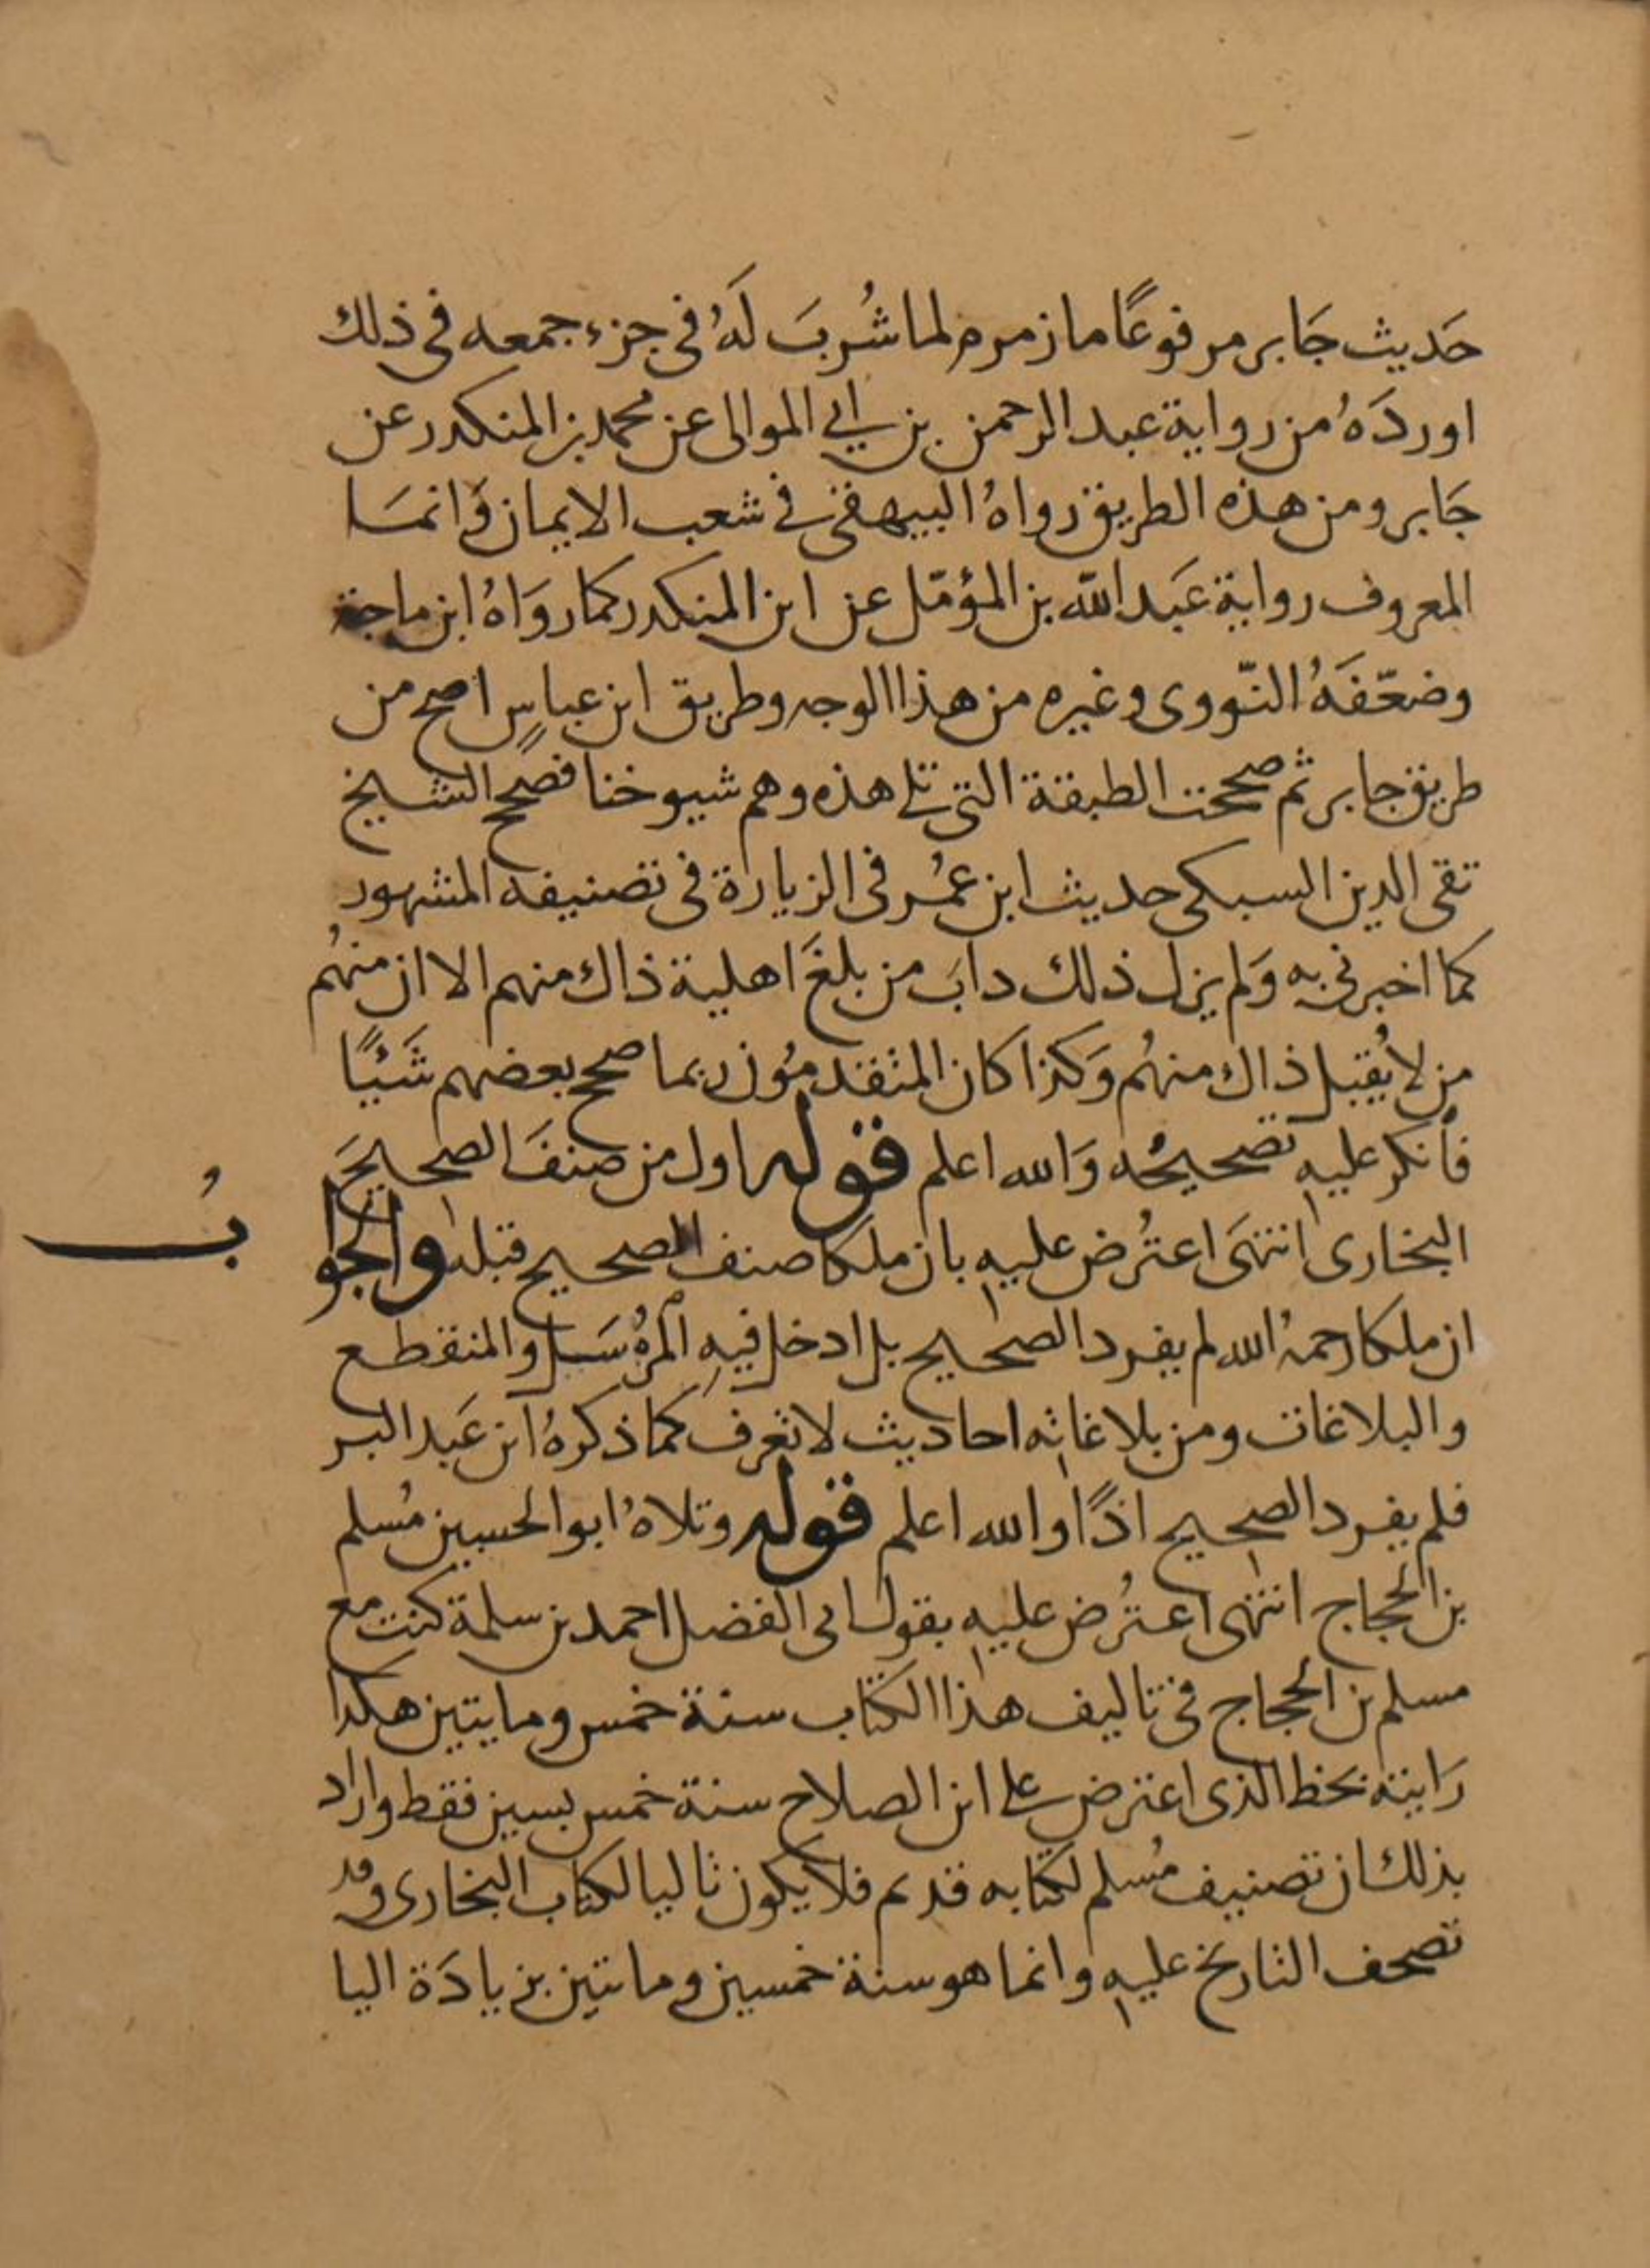 حَديث جَابر مرفوعًا ما زمزم لما شُربَ لَهُ فى جزء جمعه فى ذلك
اوردَهُ من رواية عبد الرحمن بن ابي الموالى عن محمد بن المنكدر عن
جَابر ومن هذه الطريق رواهُ البيهقى في شعب الايمان وَانمَا
المعروف رواية عَبد الله بن المؤمّل عن ابن المنكدر كما روَاهُ ابن ماجة
وضعّفَهُ النّووى وغيره من هذا الوجه وطريق ابن عباسٍ اصح من
طريق جابر ثم صححت الطبقة التى تلى هذه وهم شيوخنا فصحح الشيخ
تقى الدين السبكى حديث ابن عمُر فى الزيارة فى تصنيفه المشهور
كما اخبرنى به وَلم يزل ذلك دابَ من بلغَ اهلية ذاك منهم الا ان منهُم
من لا يُقبل ذاك منهُم وَكذا كان المتقدمُون ربما صحح بعضهم شَيْئًا
فأنكر عليهِ تصحيحُه وَالله اعلم قوله اول من صنفَ الصحيحَ
البخارى انتهَى اعترُض عليهِ بان ملكا صنف الصحيح قبله والجوابُ
ان ملكا رحمهُ الله لم يفرد الصحيح بل ادخل فيهِ المرُسَل والمنقطع
والبلاغات ومن بلاغاته احاديث لا تعرف كما ذكرهُ ابن عَبد البر
فلم يفرد الصحيح اذًا والله اعلم قوله وتلاهُ ابو الحسين مُسلم
بن الحجاج انتهى اعترُض عليهِ بقول ابى الفضل احمد بن سلمة كنت مع
مسلم بن الحجاج فى تاليف هذا الكتاب سنة خمس ومايتين هكذا
رَايته بخط الذى اعترض على ابن الصلاح سنة خمس بسين فقط واراد
بذلك ان تصنيف مُسلم لكتابه قديم فلا يكون تاليا لكتاب البخارى وقد
تصحف التاريخ عليهِ وانما هو سنة خمسين ومائتين بزيادَة اليا